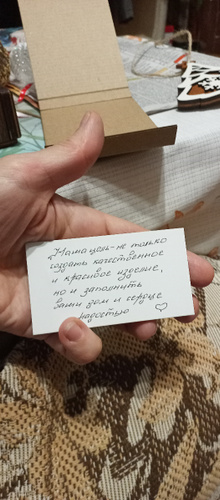 Наша цель - не только
создать качественное
и красивое изделие,
но и заполнить
ваши дом и сердце
радостью ♡